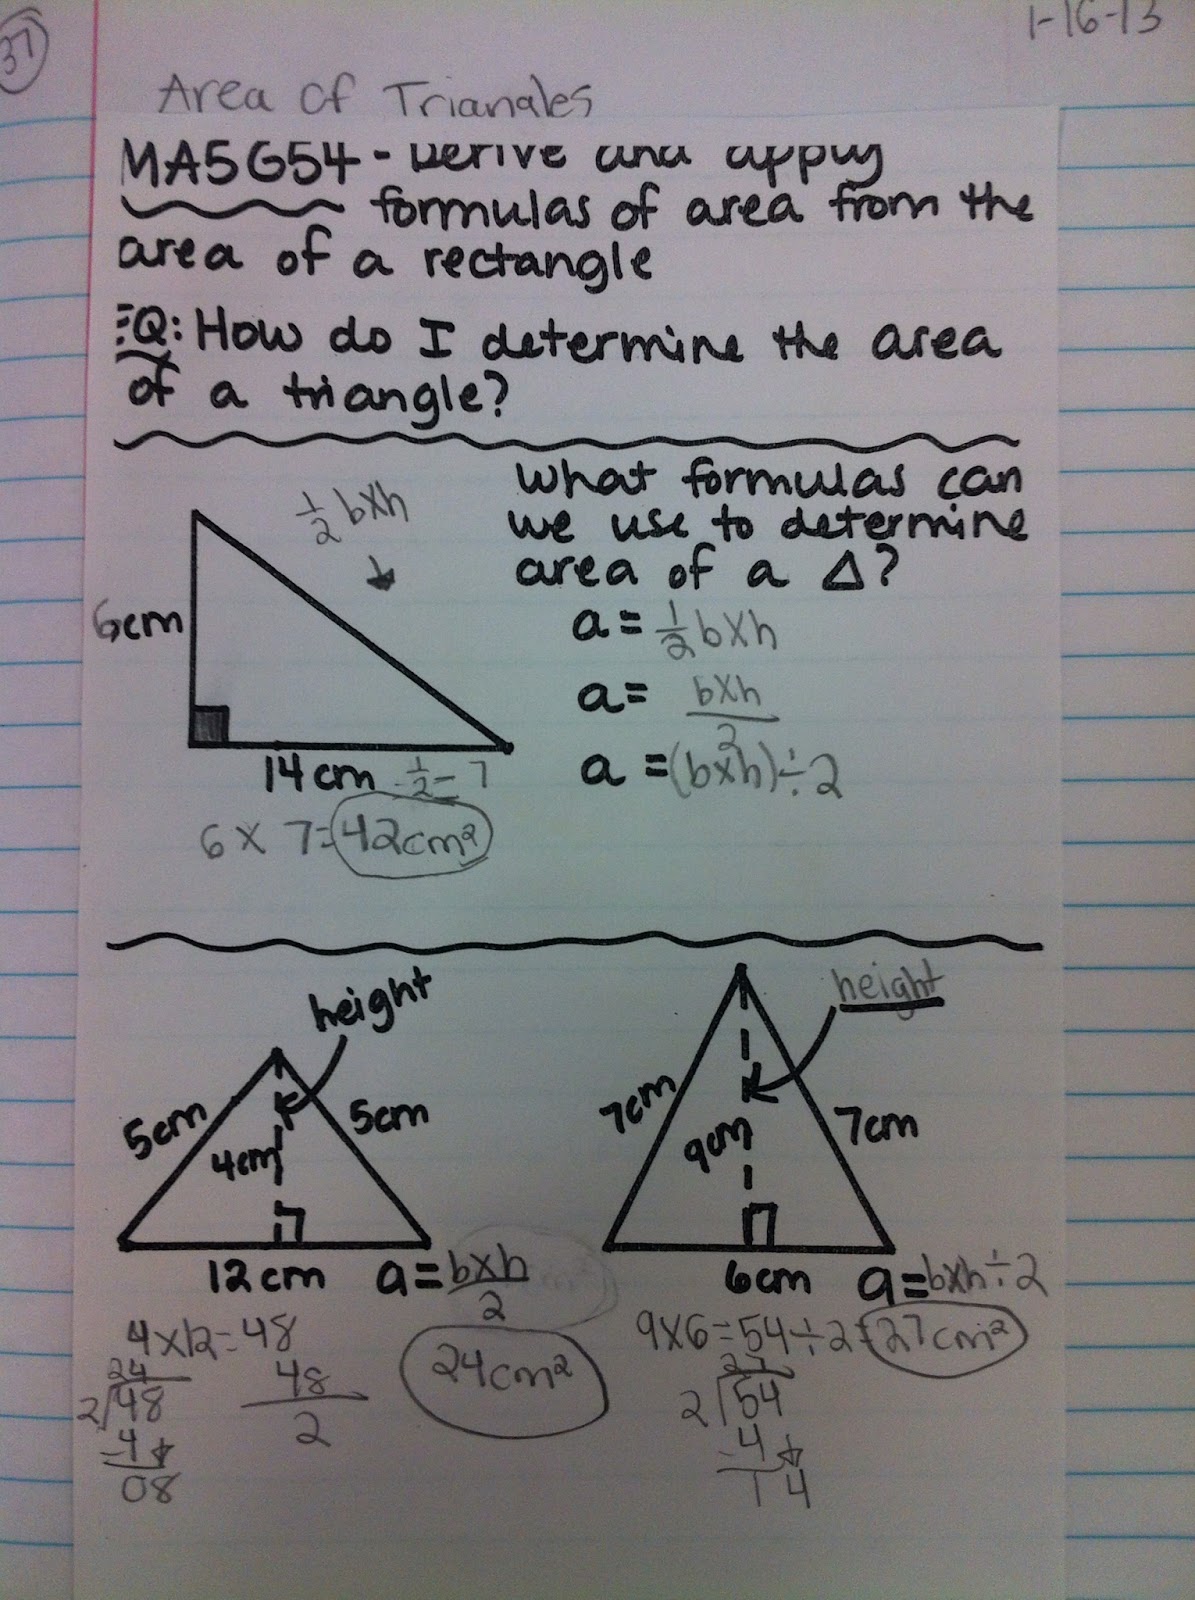 37
1-16-13
Area of Triangles
MA5G54 - Derive and apply
formulas of area from the
area of a rectangle
EQ: How do I determine the area
of a triangle?
1/2 bxh
6cm
14cm · 1/2 = 7
6 x 7 = 42cm²
What formulas can
we use to determine
area of a Δ?
a = 1/2 bxh
a = bxh
2
a = (bxh) ÷ 2
height
5cm
5cm
4cm
12cm
a = bxh
2
4x12=48
24
2)48
-4
08
48
2
24cm²
height
7cm
7cm
9cm
6cm
a=bxh÷2
9x6=54÷2=27cm²
27
2)54
-4
14